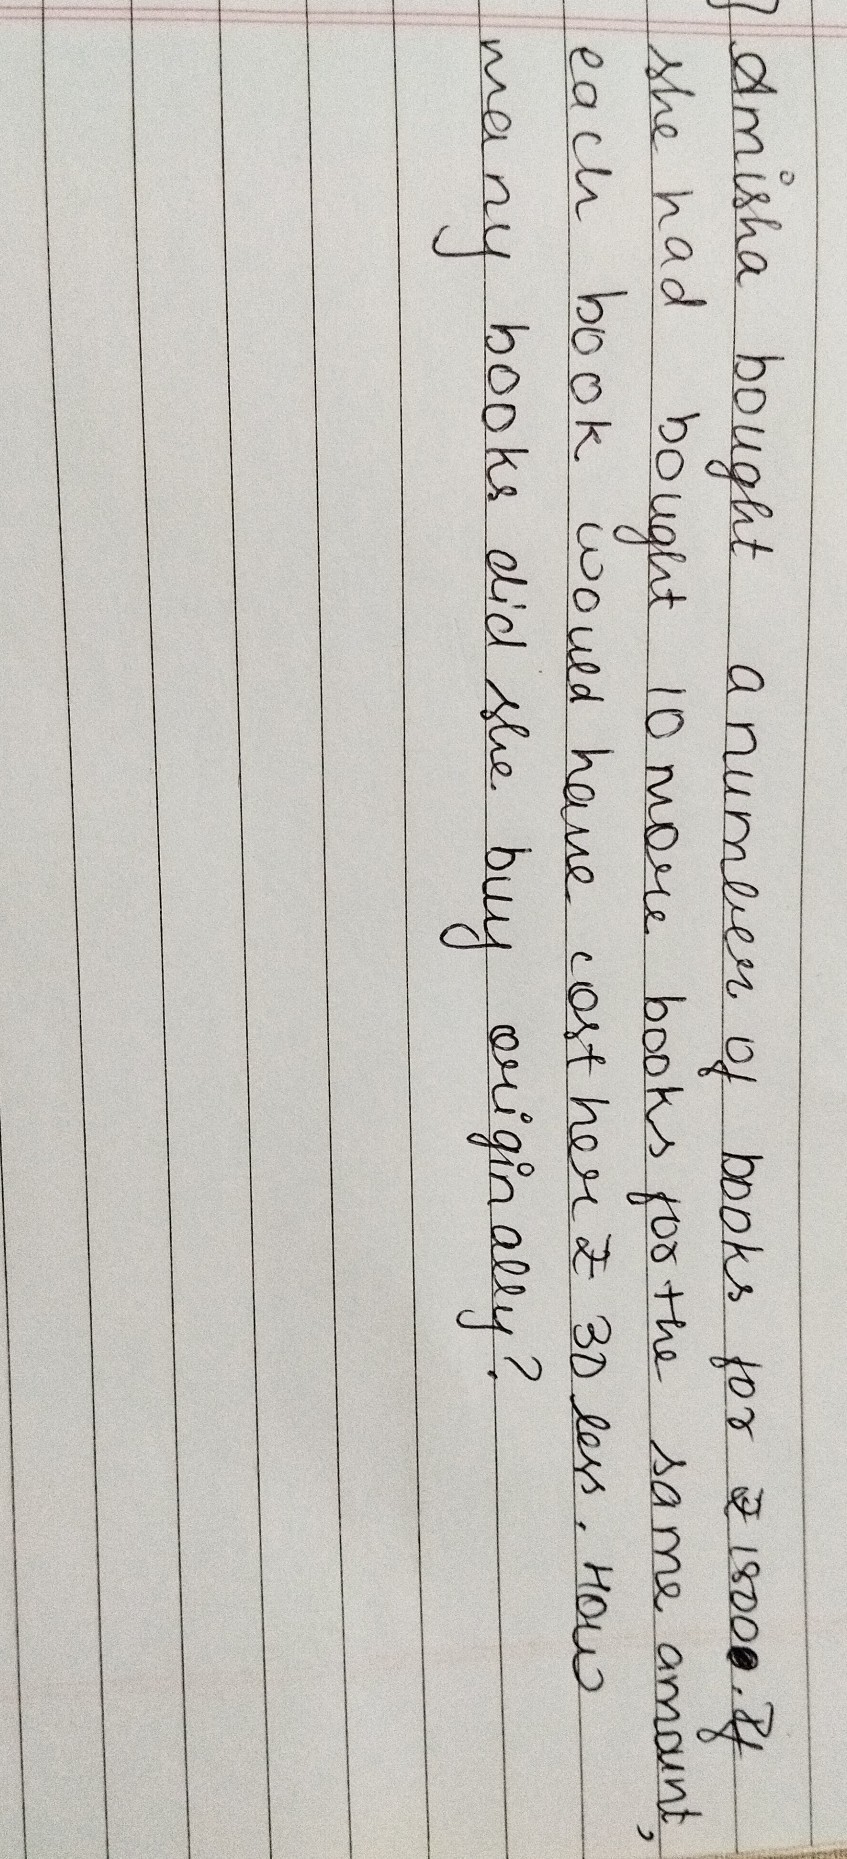 Amisha bought a number of books for ₹ 1800. If
she had bought 10 more books for the same amount,
each book would have cost her ₹ 30 less. How
many books did she buy originally?